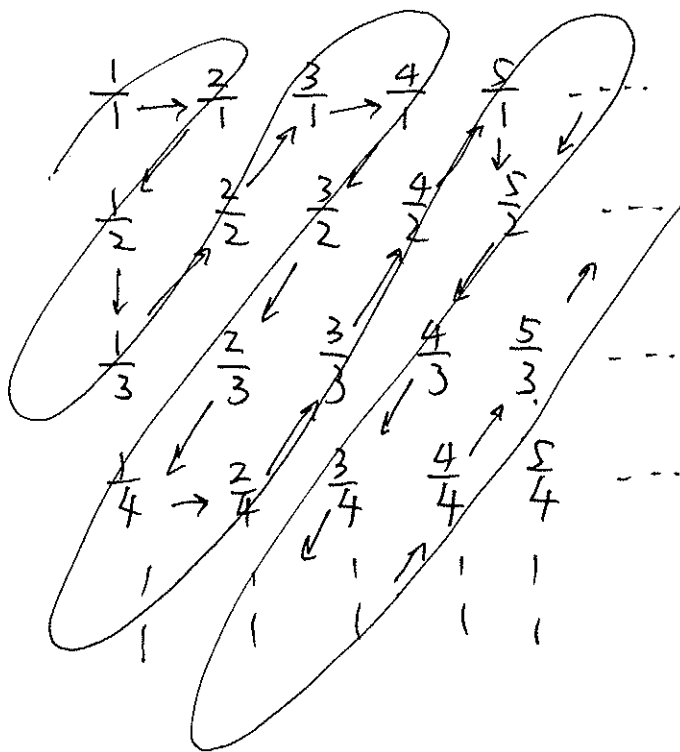 1/1 → 2/1 3/1 → 4/1 5/1 ----
1/2 2/2 3/2 4/2 5/2 ---
1/3 2/3 3/3 4/3 5/3 ---
1/4 → 2/4 3/4 4/4 5/4 ---